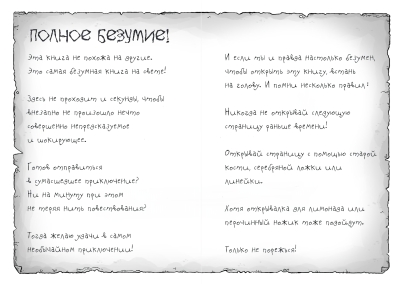 ПОЛНОЕ БЕЗУМИЕ!
Эта книга не похожа на другие.
Это самая безумная книга на свете!
Здесь не проходит и секунды, чтобы
внезапно не произошло нечто
совершенно непредсказуемое
и шокирующее.
Готов отправиться
в сумасшедшее приключение?
Ни на минуту при этом
не теряя нить повествования?
Тогда желаю удачи в самом
необычайном приключении!
И если ты и правда настолько безумен,
чтобы открыть эту книгу, встань
на голову. И помни несколько правил:
Никогда не открывай следующую
страницу раньше времени!
Открывай страницу с помощью старой
кости, серебряной ложки или
линейки.
Хотя открывалка для лимонада или
перочинный ножик тоже подойдут.
Только не порежься!